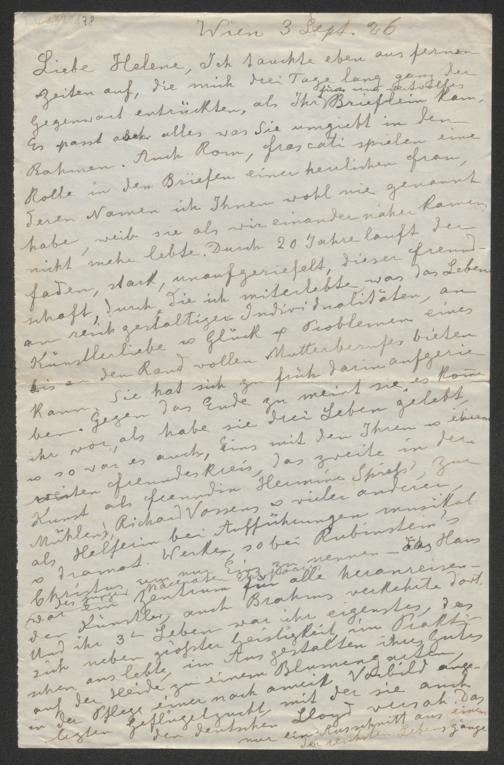 Wien 3 Sept. 26
Liebe Helene, Ich tauchte eben aus fernen
Zeiten auf, die mich drei Tage lang ganz der
Gegenwart entrückten, als Ihr Brieflein kam.
Es passt aber alles was Sie umgiebt in den
Rahmen. Auch Rom, Frascati spielen eine
Rolle in den Briefen einer herrlichen Frau,
deren Namen ich Ihnen wohl nie genannt
habe, weil sie als wir einander näher kamen,
nicht mehr lebte. Durch 20 Jahre läuft der
Faden, stark, unaufgeriefelt, dieser Freund-
schaft, durch die ich miterlebte was das Leben
an reich gestaltigen Individualitäten, an
Künstlerliebe & Glück & Problemen eines
bis an den Rand vollen Mutterberufes bieten
kann. Sie hat sich zu früh darin aufgerie-
ben. Gegen das Ende zu meint sie, es kom
ihr vor, als habe sie drei Leben gelebt,
& so war es auch, Eins mit den Ihren & ihrem
weiten Freundeskreis, das zweite in der
Kunst als Freundin Hermine Spiess, Zur
Mühlens, Richard Vossens & vieler anderer,
als Helferin bei Aufführungen musikal.
& dramat. Werke, so bei Rubinstein's
Christus um nur Eins zu nennen – das Haus
war ein Zentrum für alle heranreisen-
den Künstler, auch Brahms verkehrte dort.
Und ihr 3tes Leben war ihr eigenstes, das
sich neben größter Geistigkeit im Prakti-
schen auslebte, im Ausgestalten ihres Gutes
auf der Heide, zu einem Blumengarten,
in der Pflege einer nach amerik Vorbild ange-
legten Geflügelzucht mit der sie auch
den deutschen Lloyd versah. Das
nur ein Ausschnitt aus einem
der reichsten Lebensgänge